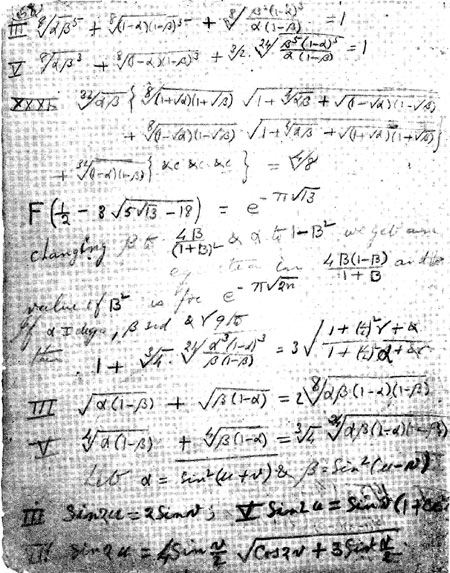 III ⁸√(αβ⁵) + ⁸√((1-α)(1-β)⁵) + ⁸√(β⁵(1-α)⁵/(α(1-β))) = 1
V ⁸√(αβ³) + ⁸√((1-α)(1-β)³) + ³√2 · ²⁴√(β⁵(1-α)⁵/(α(1-β))) = 1
XXXI ³²√(αβ) { ⁸√((1+√α)(1+√β)) √(1+⁴√(αβ) + √((1-√α)(1-√β)))
+ ⁸√((1-√α)(1-√β)) √(1+⁴√(αβ) + √((1+√α)(1+√β))) }
+ ³²√((1-α)(1-β)) { &c &c &c } = ⁴√8
F(1/2 - 3√(5√13 - 18)) = e^(-π√13)
changing β to 4B/(1+B)² & α to 1-B² we get an
equation in 4B(1-B)/(1+B) and the
value of B² is for e^(-π√2n)
If α I deg, β 3rd & γ 9th
then 1 + ³√4 · ²⁴√(α³(1-α)³/(β(1-β))) = 3√
III √(α(1-β)) + √(β(1-α)) = 2 ⁸√(αβ(1-α)(1-β))
V ⁴√(α(1-β)) + ⁴√(β(1-α)) = ³√4 ²⁴√(αβ(1-α)(1-β))
Let α = sin²(u+v) & β = sin²(u-v)
III Sin2u = 2Sinv; V Sin2u = Sinv(1+
Sin2u = 4Sin v/2 √(Cos2v + 3Sin